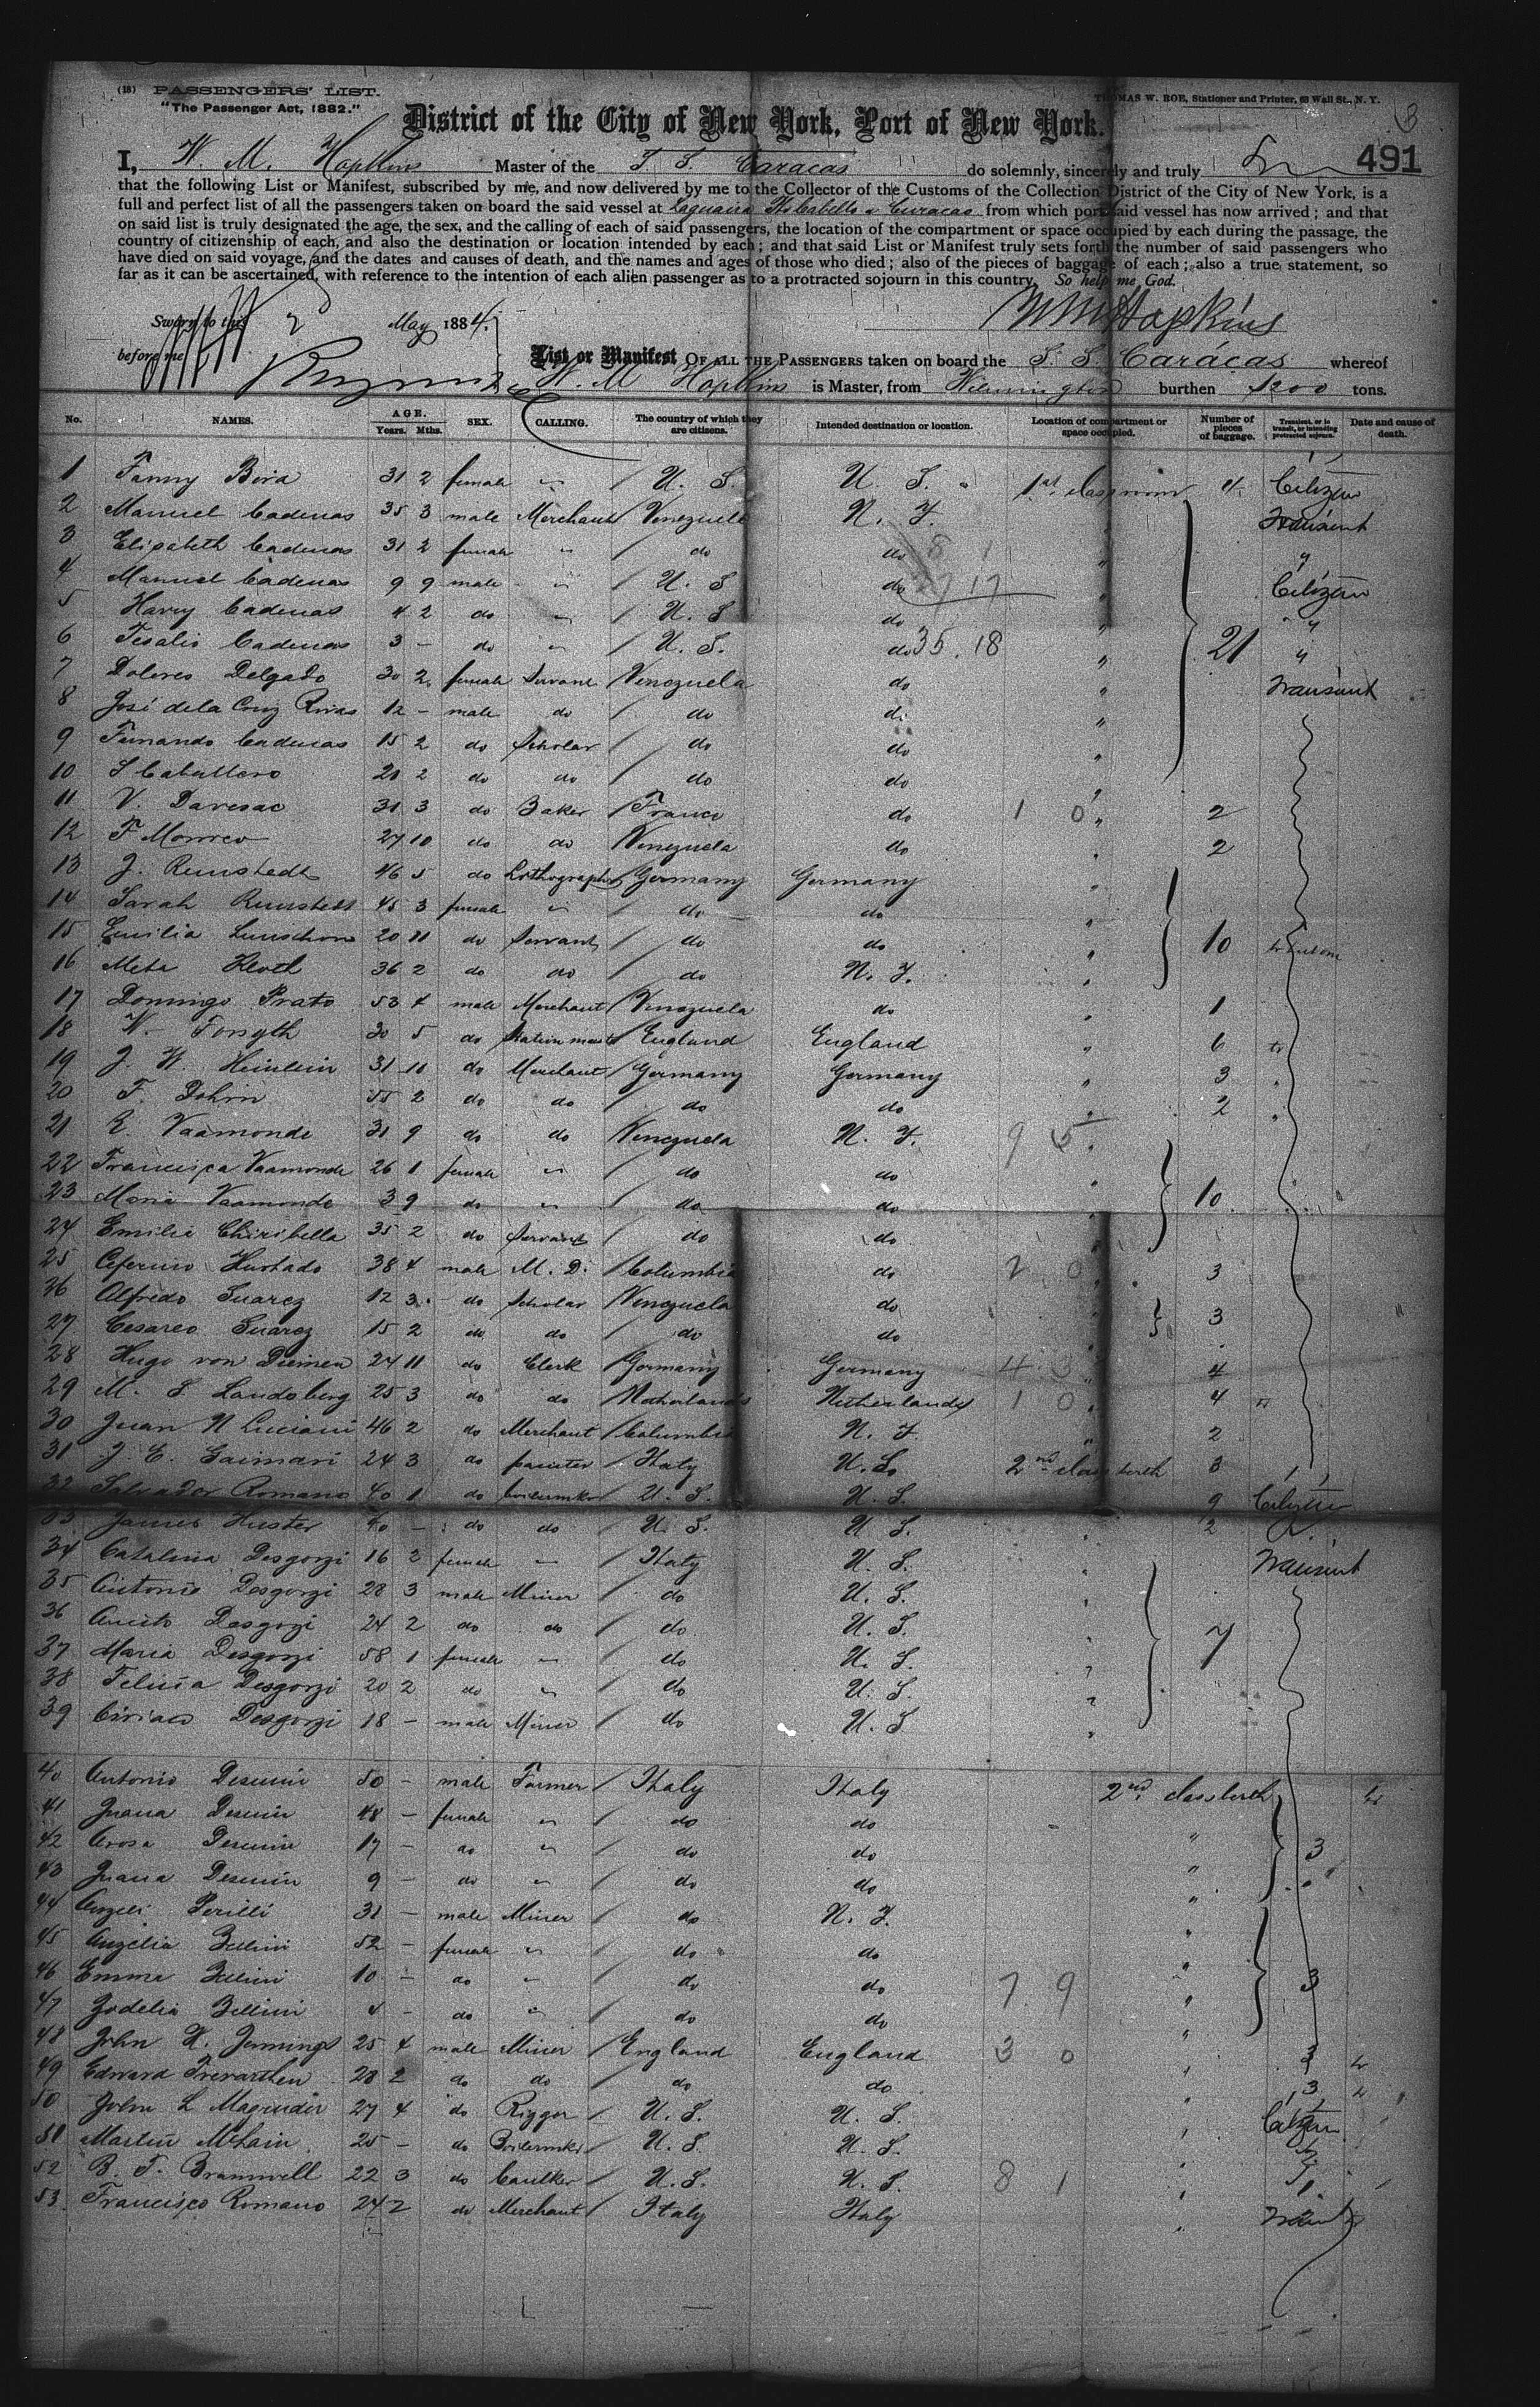 (18) PASSENGERS' LIST.
THOMAS W. ROE, Stationer and Printer, 63 Wall St., N. Y.
"The Passenger Act, 1882."
District of the City of New York, Port of New York.
491
I, W. M. Hopkins Master of the S. S. Caracas do solemnly, sincerely and truly
that the following List or Manifest, subscribed by me, and now delivered by me to the Collector of the Customs of the Collection District of the City of New York, is a
full and perfect list of all the passengers taken on board the said vessel at Laguaira Pto Cabello & Curacao from which port said vessel has now arrived; and that
on said list is truly designated the age, the sex, and the calling of each of said passengers, the location of the compartment or space occupied by each during the passage, the
country of citizenship of each, and also the destination or location intended by each; and that said List or Manifest truly sets forth the number of said passengers who
have died on said voyage, and the dates and causes of death, and the names and ages of those who died; also of the pieces of baggage of each; also a true statement, so
far as it can be ascertained, with reference to the intention of each alien passenger as to a protracted sojourn in this country. So help me God.
Sworn to this 2 May 1884. W M Hopkins
before me
List or Manifest OF ALL THE PASSENGERS taken on board the S. S. Carácas whereof
W. M Hopkins is Master, from Wilmington burthen 1200 tons.
No. NAMES. AGE. Years. Mths. SEX. CALLING. The country of which they are citizens. Intended destination or location. Location of compartment or space occupied. Number of pieces of baggage. Transient, or in transit, or intending protracted sojourn. Date and cause of death.
1 Fanny 31 2 female " U. S. U. S. 1st class room 4 Citizen
2 Manuel Cadenas 35 3 male Merchant Venezuela N. Y. " Transient
3 Elizabeth Cadenas 31 2 female " do do " "
4 Manuel Cadenas 9 9 male " U. S do " Citizen
5 Harry Cadenas 4 2 do " U. S do " "
6 Tesalio Cadenas 3 - do " U. S. do 35. 18 " 21 "
7 Dolores Delgado 30 2 female Servant Venezuela do " Transient
8 José dela Cruz Rivas 12 - male do do do "
9 Fernando Cadenas 15 2 do Scholar do do "
10 S Caballero 21 2 do do do do "
11 V. Davesac 31 3 do Baker France do 1 0 " 2
12 F 27 10 do do Venezuela do " 2
13 J. Remstedt 46 5 do Lithographer Germany Germany "
14 Sarah Remstedt 45 3 female " do do "
15 Emilia 20 11 do Servant do do " 10
16 Meta 36 2 do do do N. Y. "
17 Domingo Prato 53 4 male Merchant Venezuela do " 1
18 W. Forsyth 30 5 do Station master England England " 6 tr
19 J. W. Heinlein 31 10 do Merchant Germany Germany " 3 "
20 F. Dohrn 55 2 do do do do " 2 "
21 E. Vaamonde 31 9 do do Venezuela N. Y. 9 5 "
22 Francisca Vaamonde 26 1 female " do do "
23 Maria Vaamonde 3 9 do " do do " 10
24 Emilia Chiribella 35 2 do Servant do do "
25 Ceferino Hurtado 38 4 male M. D. Columbia do 2 0 " 3
26 Alfredo Suarez 12 3 do Scholar Venezuela do " 3
27 Cesareo Suarez 15 2 do do do do "
28 Hugo von 24 11 do Clerk Germany Germany 4 3 " 4
29 M. S. Landsberg 25 3 do do Netherlands Netherlands 1 0 " 4 tr
30 Juan N Luciani 46 2 do Merchant Columbia N. Y. " 2
31 J. E. Gaimari 24 3 do painter Italy U. S. 2nd class berth 3
32 Salvador Romano 40 1 do boilermker U. S. U. S. 9 Citizen
33 James Huster 40 - do do U. S. U S. " 2
34 Catalina Desgorzi 16 2 female " Italy U. S. " Transient
35 Antonio Desgorzi 28 3 male Miner do U. S. "
36 Aniceto Desgorzi 24 2 do do do U. S. " 7
37 Maria Desgorzi 58 1 female " do U. S. "
38 Felicia Desgorzi 20 2 do " do U. S. "
39 Ciriaco Desgorzi 18 - male Miner do U. S "
40 Antonio 50 - male Farmer Italy Italy 2nd class berth tr
41 Juana 48 - female " do do "
42 17 - do " do do " 3
43 Juana 9 - do " do do " "
44 Perilli 31 - male Miner do N. Y. "
45 Angelia Bellini 52 - female " do do "
46 Emma Bellini 10 - do " do do 7 9 " 3
47 Bellini 4 - do " do do "
48 John H. Jennings 25 4 male Miner England England 3 0 " 3 tr
49 Edward Trevarthen 28 2 do do do do " 3 tr
50 John L Magruder 27 4 do Rigger U. S. U. S. " Citizen
51 Martin McLain 25 - do Boilermker U. S. U. S. "
52 B. F. Bramwell 22 3 do Caulker U. S. U. S. 8 1 "
53 Francisco Romano 24 2 do Merchant Italy Italy "